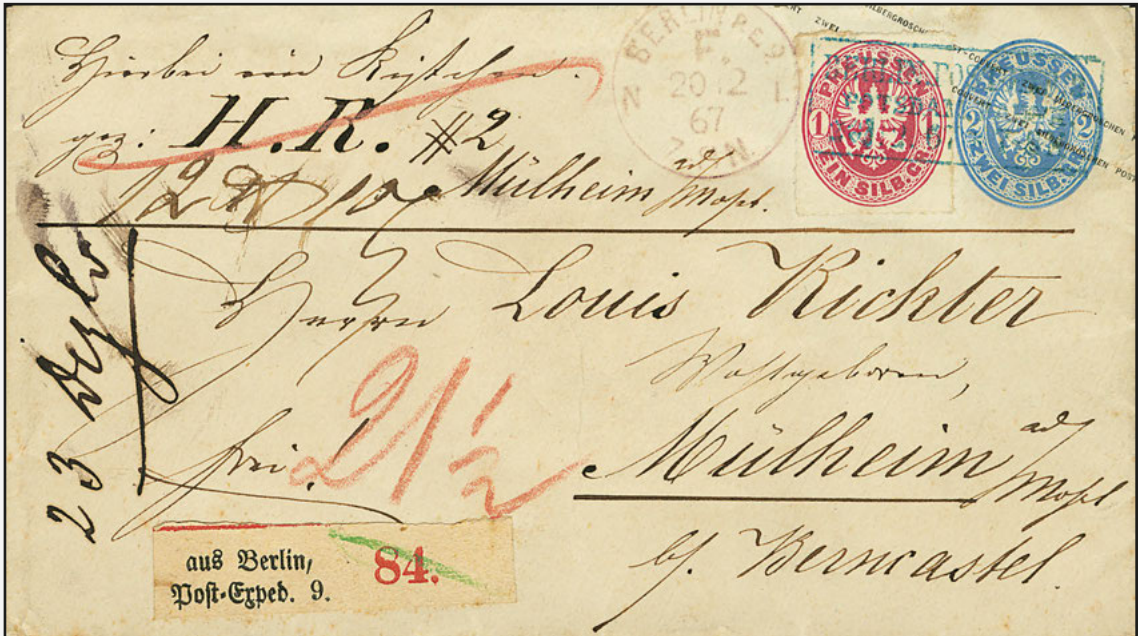 Hierbei ein Kistchen.
gez: H. R. #2
Mülheim a/d Mosel.
BERLIN P.E. 9.
F.
20 12
67
N
PREUSSEN
1 1
EIN SILB.GR.
PREUSSEN
2 2
ZWEI SILB.GR.
POTSDAM
Herrn Louis Richter
Wohlgeboren,
frei.
21 1/2
Mülheim a/d Mosel
b/. Berncastel.
23 Dezbr
aus Berlin,
Post-Exped. 9.
84.